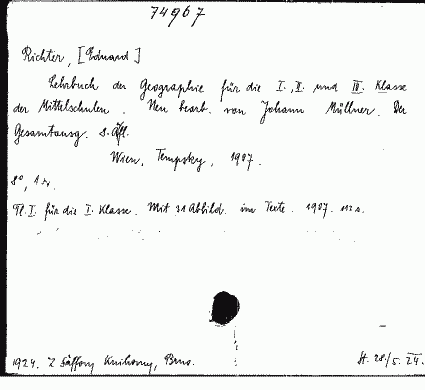 74967
Richter, [Eduard]
Lehrbuch der Geographie für die I., II. und III. Klasse
der Mittelschulen. Neu bearb. von Johann Müllner. Der
Gesamtausg. 8. Afl.
Wien, Tempsky, 1907.
8°, 1 sv.
Tl. I. für die I. Klasse. Mit 31 Abbild. im Texte. 1907. 112 s.
1924. Z Knihovny, Brno.
H. 28/5. 24.